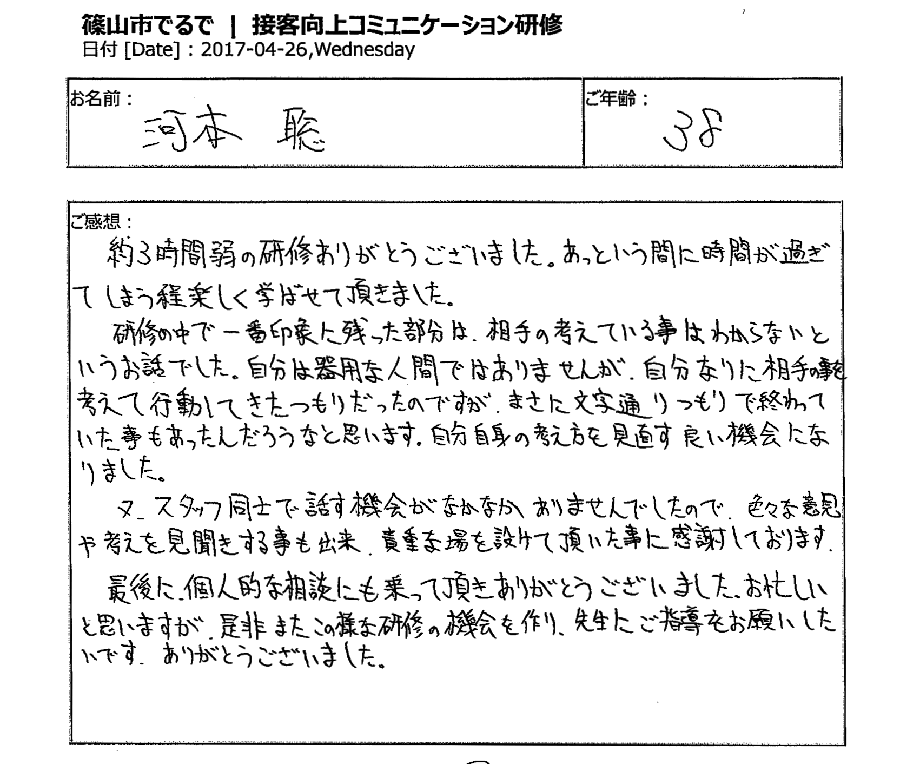 篠山市でるで | 接客向上コミュニケーション研修
日付 [Date] : 2017-04-26,Wednesday
お名前：
河本 聡
ご年齢：
38
ご感想：
約3時間弱の研修ありがとうございました。あっという間に時間が過ぎ
てしまう程楽しく学ばせて頂きました。
研修の中で一番印象に残った部分は、相手の考えている事はわからないと
いうお話でした。自分は器用な人間ではありませんが、自分なりに相手の事を
考えて行動してきたつもりだったのですが、まさに文字通りつもりで終わって
いた事もあったんだろうなと思います。自分自身の考え方を見直す良い機会にな
りました。
又、スタッフ同士で話す機会がなかなかありませんでしたので、色々な意見
や考えを見聞きする事も出来、貴重な場を設けて頂いた事に感謝しております。
最後に、個人的な相談にも乗って頂きありがとうございました。お忙しい
と思いますが、是非またこの様な研修の機会を作り、先生にご指導をお願いした
いです。ありがとうございました。